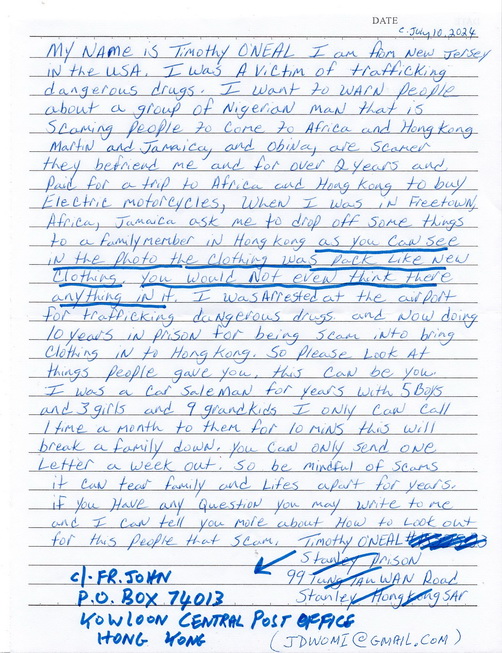 DATE
C. July 10, 2024
My NAME is Timothy O'NEAL I am from New Jersey
in the USA. I was A victim of trafficking
dangerous drugs. I want to WARN People
about a group of Nigerian man that is
Scaming People to Come to Africa and Hong Kong
Martin and Jamaica, and Obiva, are Scamer
they befriend me and for over 2 years and
Paid for a trip to Africa and Hong Kong to buy
Electric motorcycles, When I was in Freetown,
Africa, Jamaica ask me to drop off some things
to a family member in Hong kong as you can see
in the photo the clothing was pack like New
Clothing you would Not even think there
anything in it. I was Arrested at the airport
for trafficking dangerous drugs and now doing
10 years in prison for being scam into bring
Clothing in to Hong Kong. So Please Look At
things People gave you, this can be you.
I was a Car SaleMan for years with 5 Boys
and 3 girls and 9 grandkids I only can call
1 time a month to them for 10 mins this will
break a family down. you can only send one
Letter a week out. So be mindful of scams
it can tear family and Lifes apart for years.
if you Have any Question you may write to me
and I can tell you more about How to Look out
for this People that Scam. Timothy O'NEAL
Stanley Prison
99 Tung Tau WAN Road
Stanley Hong Kong SAR
c/- FR. JOHN
P.O. BOX 74013
KOWLOON CENTRAL POST OFFICE
HONG KONG
(JDWOMI@GMAIL.COM)